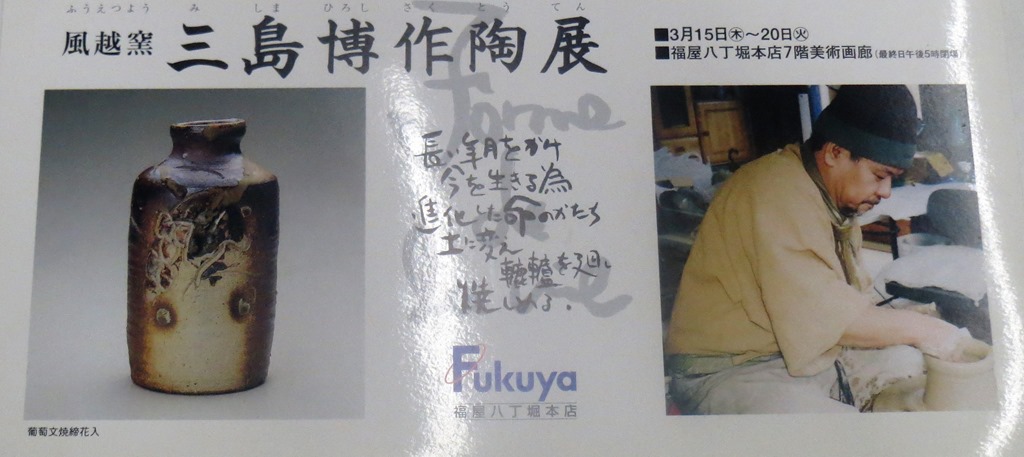 ふうえつよう み しま ひろし さく とう てん
風越窯 三島博作陶展
■3月15日㊍～20日㊋
■福屋八丁堀本店7階美術画廊(最終日午後5時閉場)
長い年月をかけ
今を生きる為
進化した命のかたち
土に変え
轆轤を廻し
焼しめる.
Fukuya
福屋八丁堀本店
葡萄文焼締花入